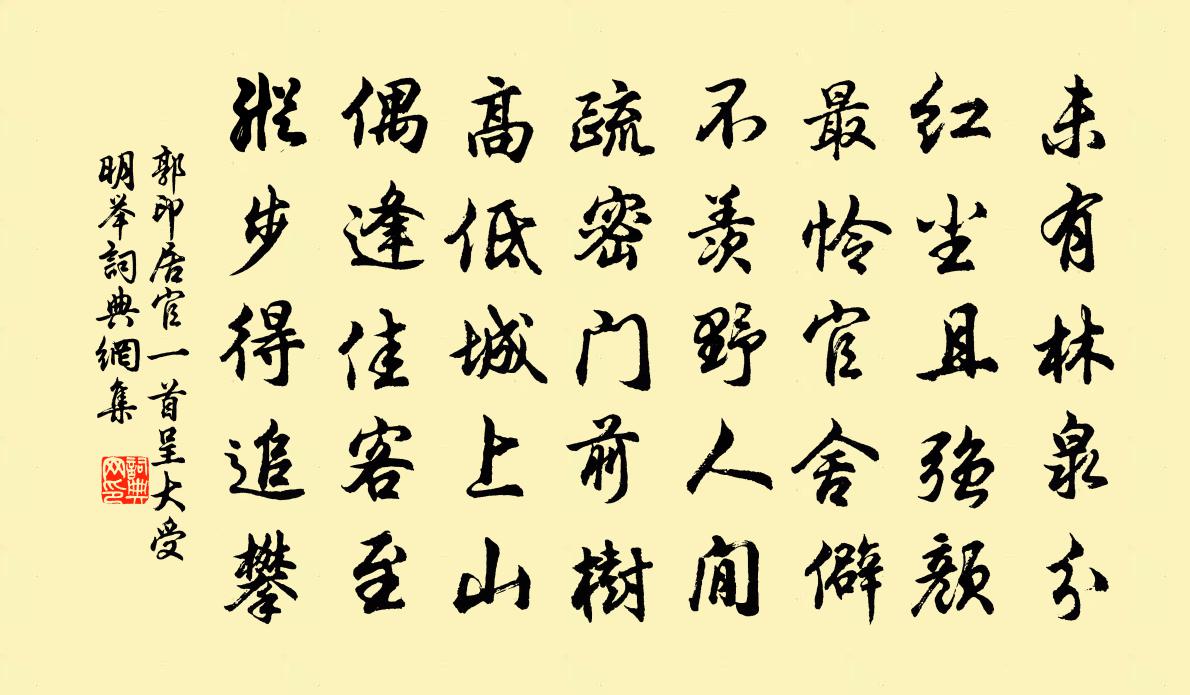 未有林泉分
红尘且强颜
最怜官舍僻
不羡野人闲
疏密门前树
高低城上山
偶逢佳客至
纵步得追攀
郭印居官一首呈大受
明举詞典網集
詞典网印